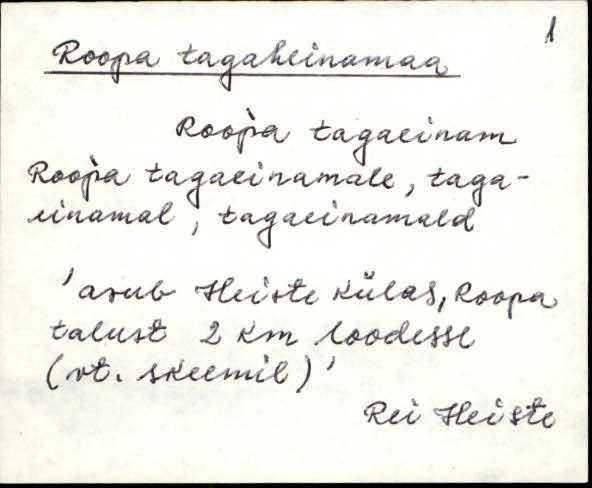 1
Roopa tagaheinamaa
Roop̀a tagaeinam
Roop̀a tagaeinamale, taga-
einamal, tagaeinamald
'asub Heiste külas, Roopa
talust 2 km loodesse
(vt. skeemil)'
Rei Heiste